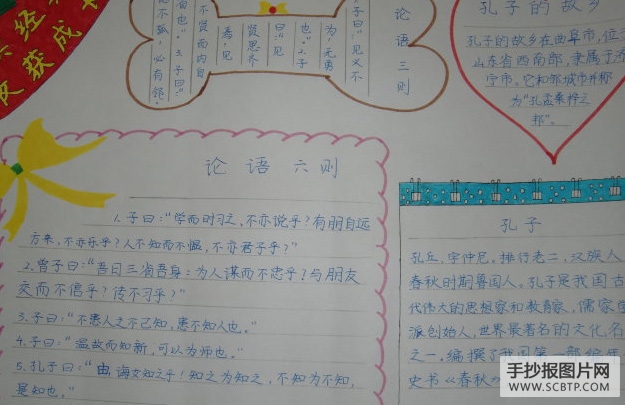 论语三则
子曰：“见义不
为，无勇
也”。2.子
曰：“见
贤思齐
焉，见
不贤而内自
省也”。3.子曰：“
不孤，必有邻
孔子的故乡
孔子的故乡在曲阜市，位
山东省西南部，隶属于济
宁市。它和邹城市并称
为“孔孟桑梓之
邦”。
经
获成
论语六则
1.子曰：“学而时习之，不亦说乎？有朋自远
方来，不亦乐乎？人不知而不愠，不亦君子乎？”
2.曾子曰：“吾日三省吾身：为人谋而不忠乎？与朋友
交而不信乎？传不习乎？”
3.子曰：“不患人之不己知，患不知人也。”
4.子曰：“温故而知新，可以为师也。”
5.孔子曰：“由，诲女知之乎！知之为知之，不知为不知，
是知也。”
孔子
孔丘，字仲尼，排行老二，汉族人
春秋时期鲁国人。孔子是我国古
代伟大的思想家和教育家，儒家
派创始人，世界最著名的文化名
之一。编撰了我国第一部编年
史书《春秋》
手抄报图片网
WWW.SCBTP.COM